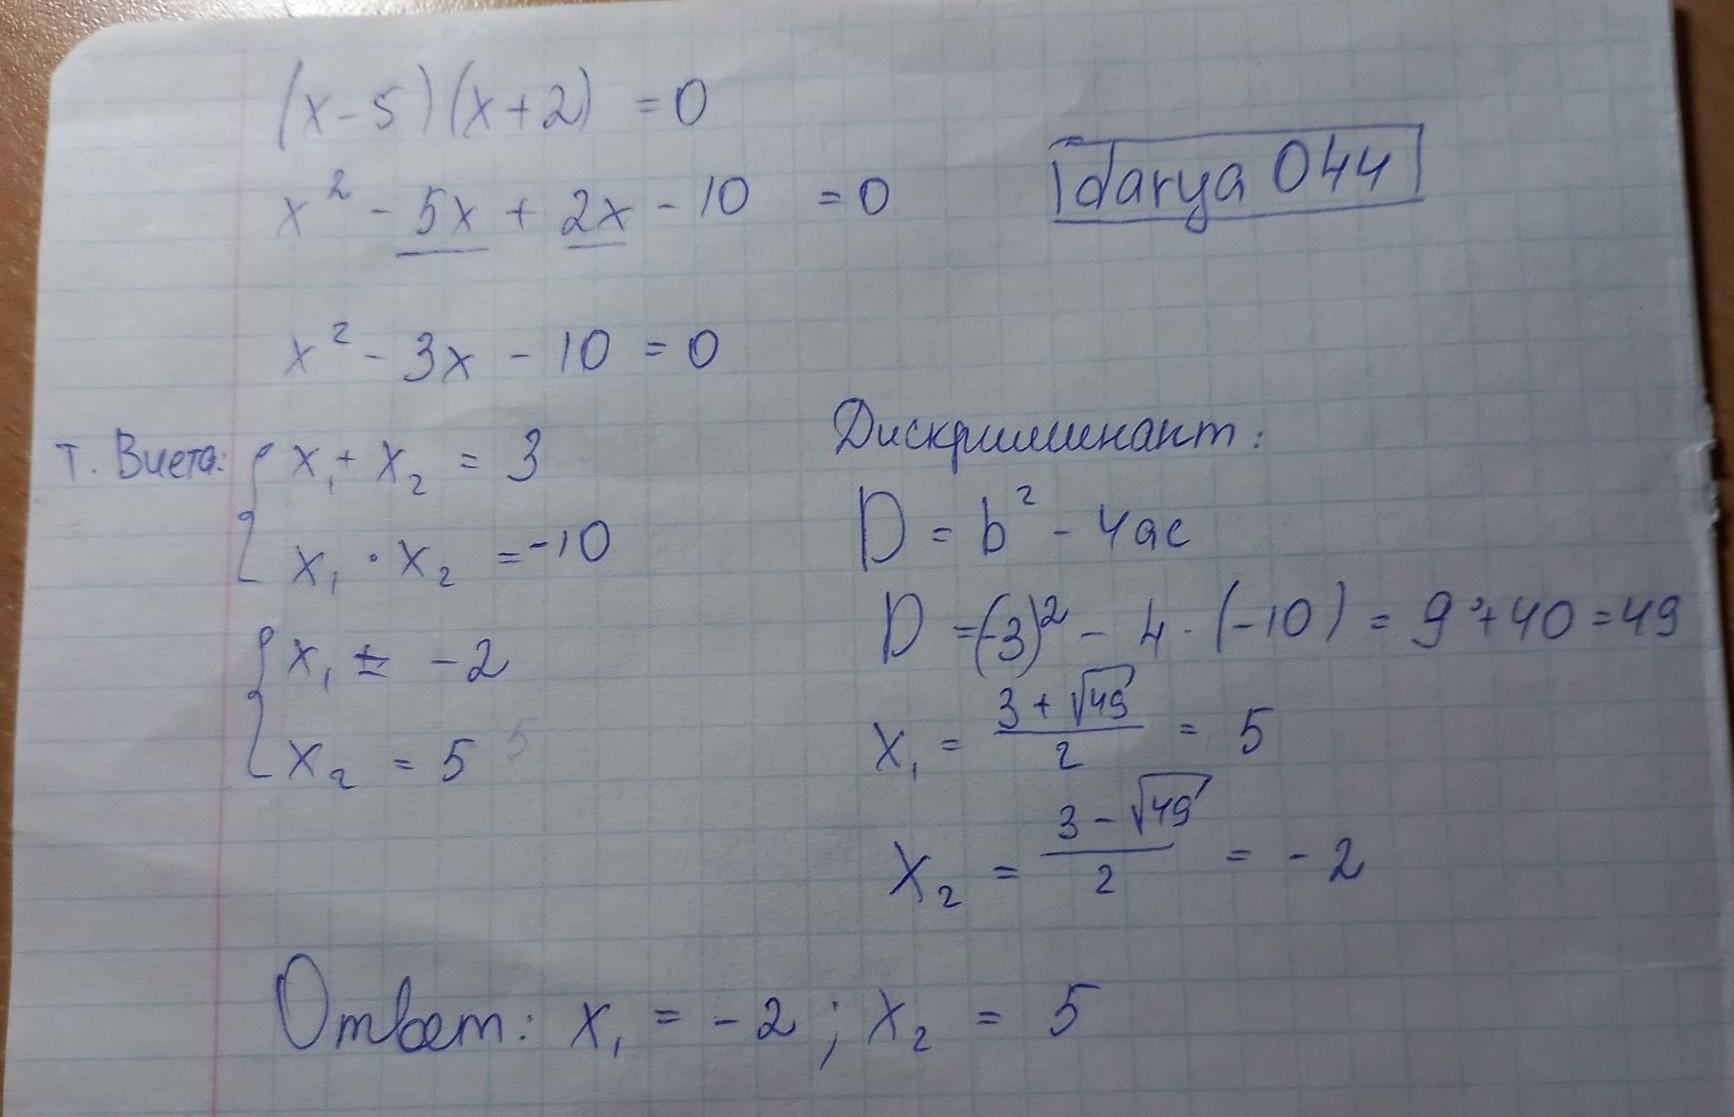 (x-5)(x+2) = 0
x² - 5x + 2x - 10 = 0
darya 044
x² - 3x - 10 = 0
т. Виета: { x₁ + x₂ = 3
x₁ · x₂ = -10
{ x₁ = -2
x₂ = 5 5
Дискриминант:
D = b² - 4ac
D = (-3)² - 4 · (-10) = 9 + 40 = 49
x₁ = (3 + √49)/2 = 5
x₂ = (3 - √49)/2 = -2
Ответ: x₁ = -2 ; x₂ = 5